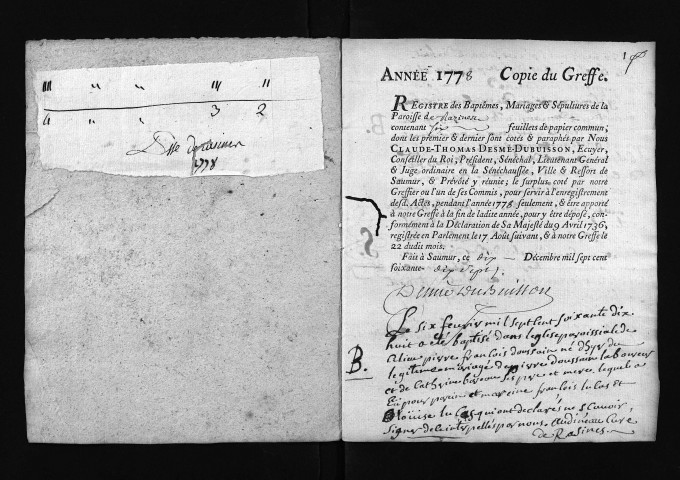 III " " III II
4 " " 3 2
1778
ANNÉE 1778 Copie du Greffe.
REGISTRE des Baptêmes, Mariages & Sépultures de la
Paroisse de
contenant six feuillets de papier commun;
dont les premier & dernier sont cotés & paraphés par Nous
CLAUDE-THOMAS DESMÉ-DUBUISSON, Ecuyer,
Conseiller du Roi, Président, Sénéchal, Lieutenant Général
& Juge ordinaire en la Sénéchaussée, Ville & Ressort de
Saumur, & Prévôté y réunie; le surplus coté par notre
Greffier ou l'un de ses Commis, pour servir à l'enregistrement
desd. Actes, pendant l'année 1778 seulement, & être apporté
à notre Greffe à la fin de ladite année, pour y être déposé, con-
formément à la Déclaration de Sa Majesté du 9 Avril 1736,
registrée en Parlement le 17 Août suivant, & à notre Greffe le
22 dudit mois.
Fait à Saumur, ce dix Décembre mil sept cent
soixante-dix sept.
Desmé Dubuisson
Le six feuvrir mil sept cent soixante dix
huit a été baptisé dans leglise paroissiale de
pierre francois doussain né d'hyr du
B. legitime mariage de pierre doussain laboureur
et de Catherine ses pere et mere lequel a
Eu pour parein et mareine francois lucas et
Loüise lucas qui ont declarés ne scavoir
signer de ce interpellés par nous audineau Curé
de Rasines